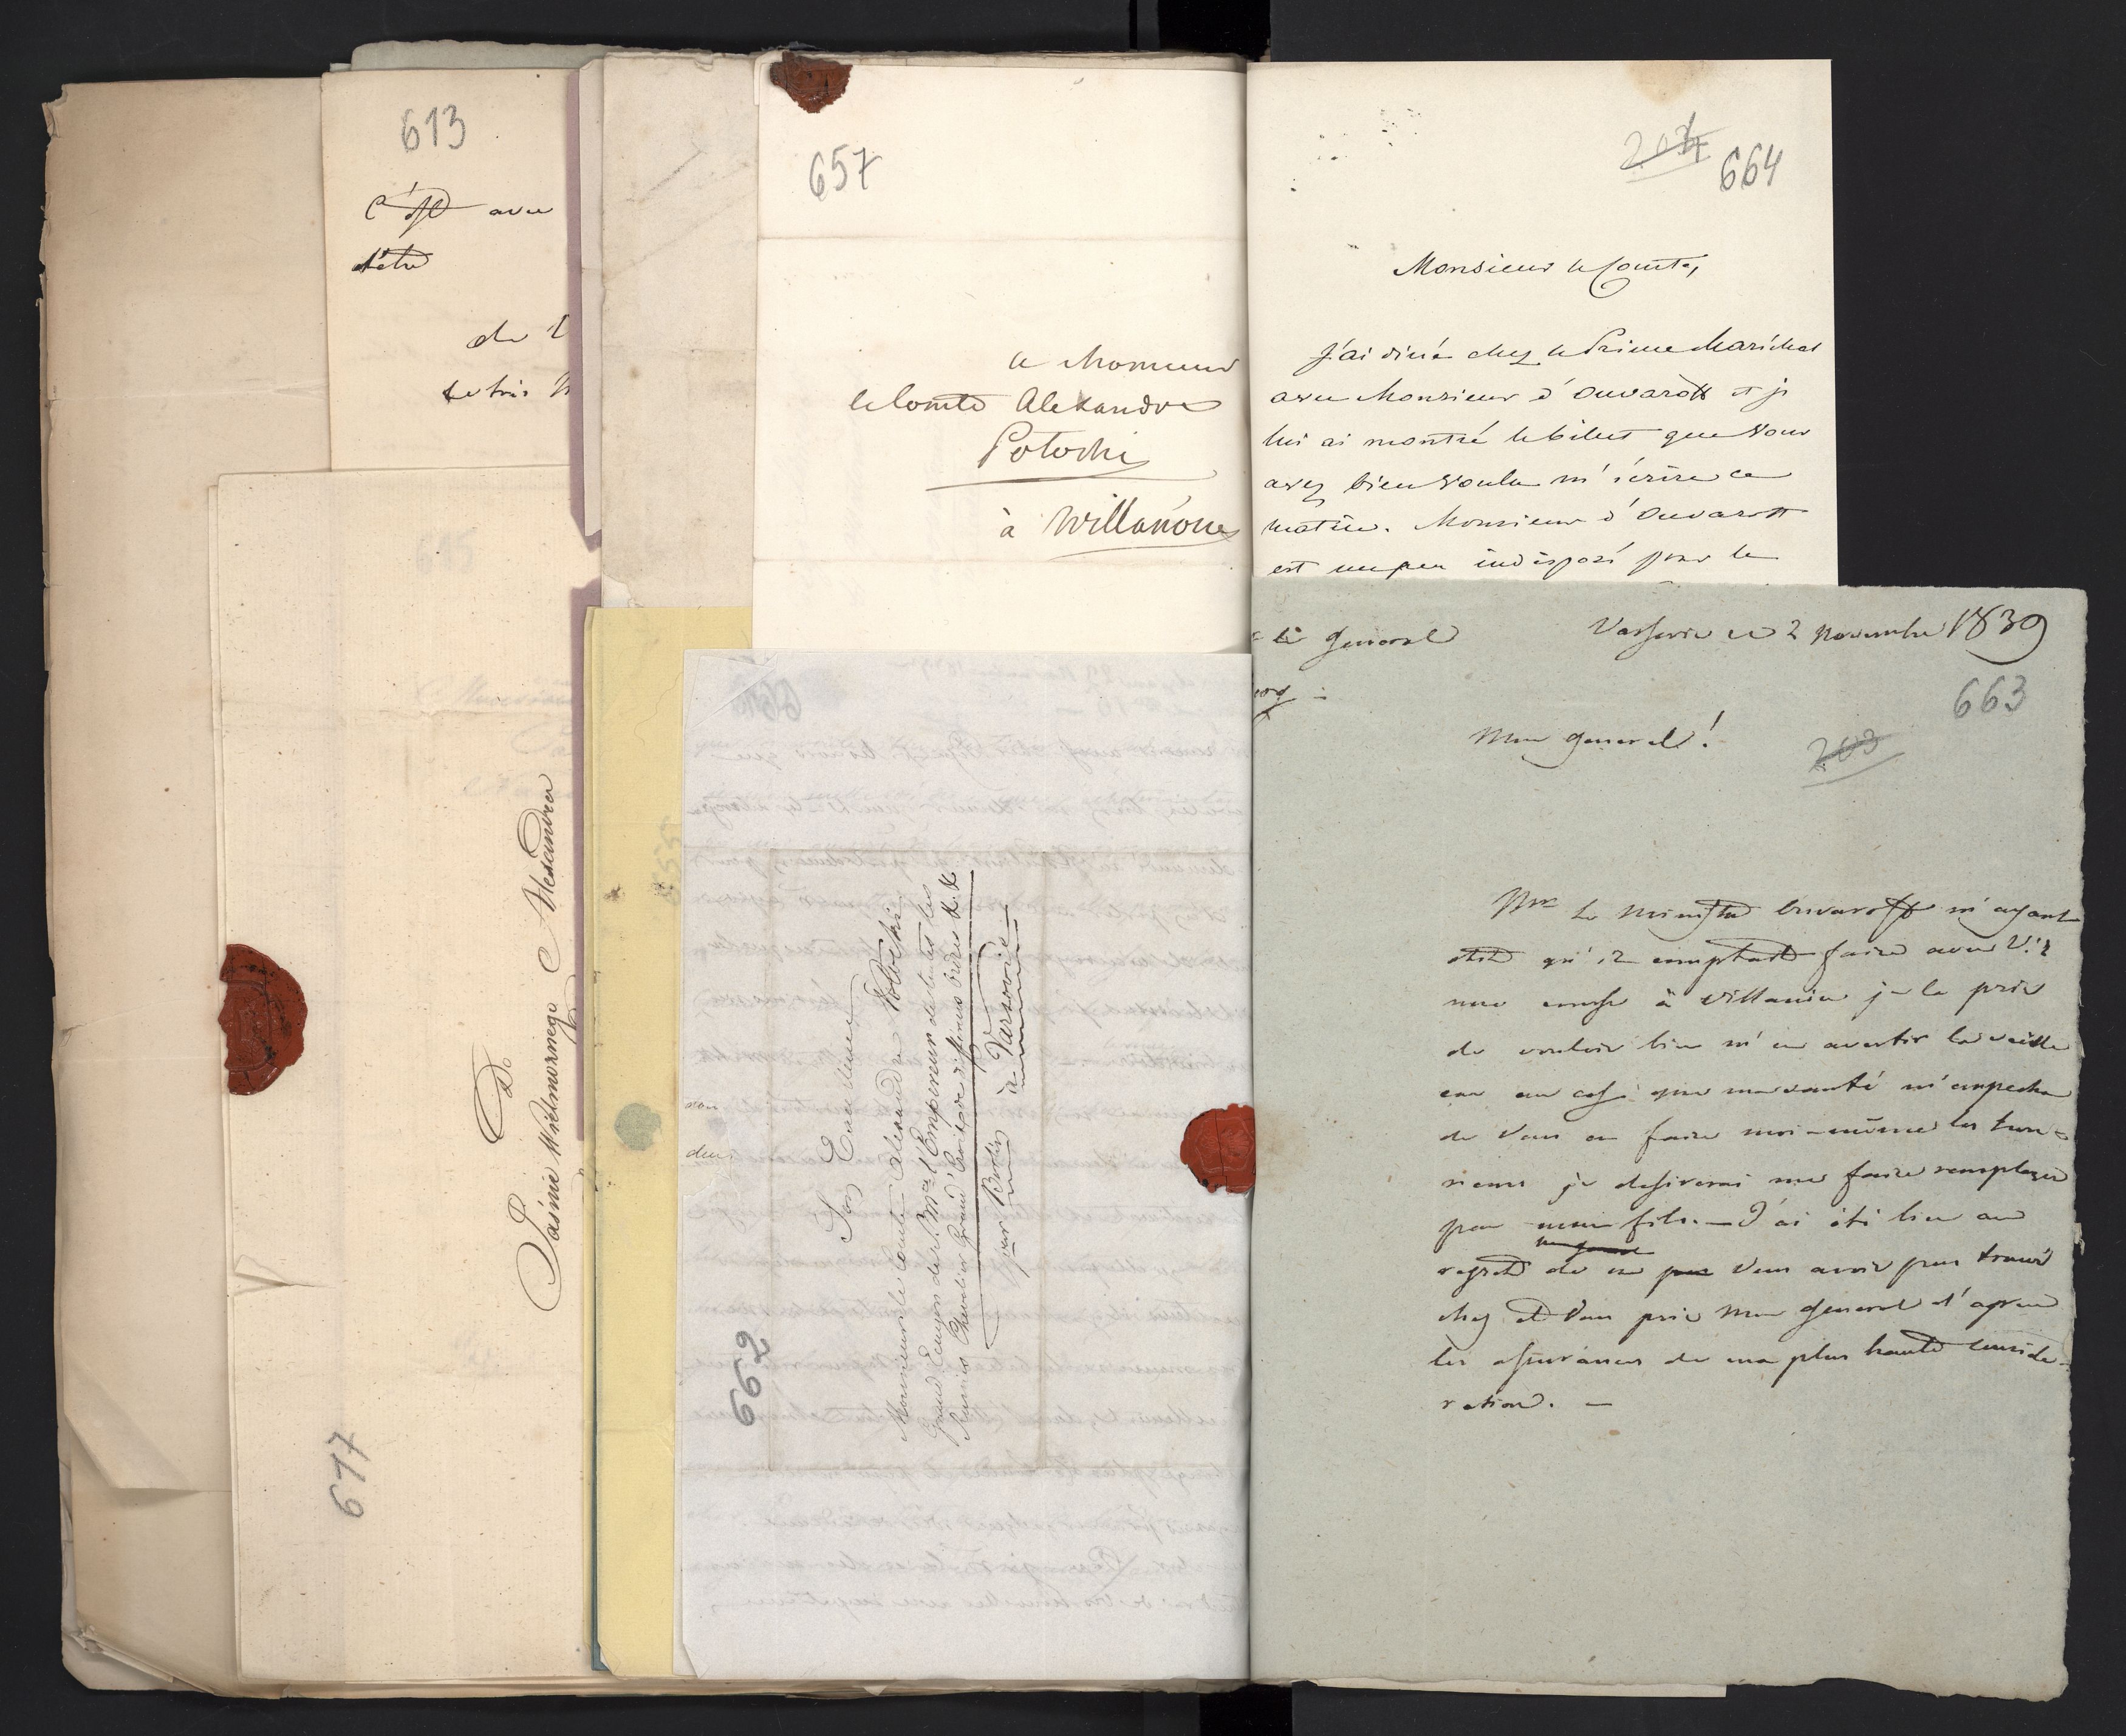 613
C'est avec
d'être
de V
le très h
617
Do
Jaśnie Wielmożnego Alexandra
657
A Monsieur
le Comte Alexandre
Potocki
à Willanow
662
Son Excellence
Monsieur le Comte Alexandre Potocki
Grand Ecuyer de S. Mté l'Empereur de toutes les
Russies Chevalier Grand' Croix de différens ordres &. &.
par Berlin à Varsovie
204
664
Monsieur le Comte,
J'ai diné chez le Prince Maréchal
avec Monsieur d'Ouvaroff et je
lui ai montré le billet que Vous
avez bien voulu m'écrire ce
matin. Monsieur d'Ouvaroff
est un peu indisposé pour le
le General
Varsovie ce 2 Novembre 1839
663
Mon general!
203
Mr le Ministre Ouvaroff m'ayant
dit qu'il comptait faire avec V:
une course à Villanow je le prie
de vouloir bien m'en avertir la veille
car au cas que ma santé m'empecha
de Vous en faire moi-même les hon-
neurs je desirerai me faire remplacer
par mon fils. — J'ai été bien au
regret de ne pas Vous avoir pas trouvé
chez et Vous prie Mon General d'agréer
les assurances de ma plus haute conside-
ration. —